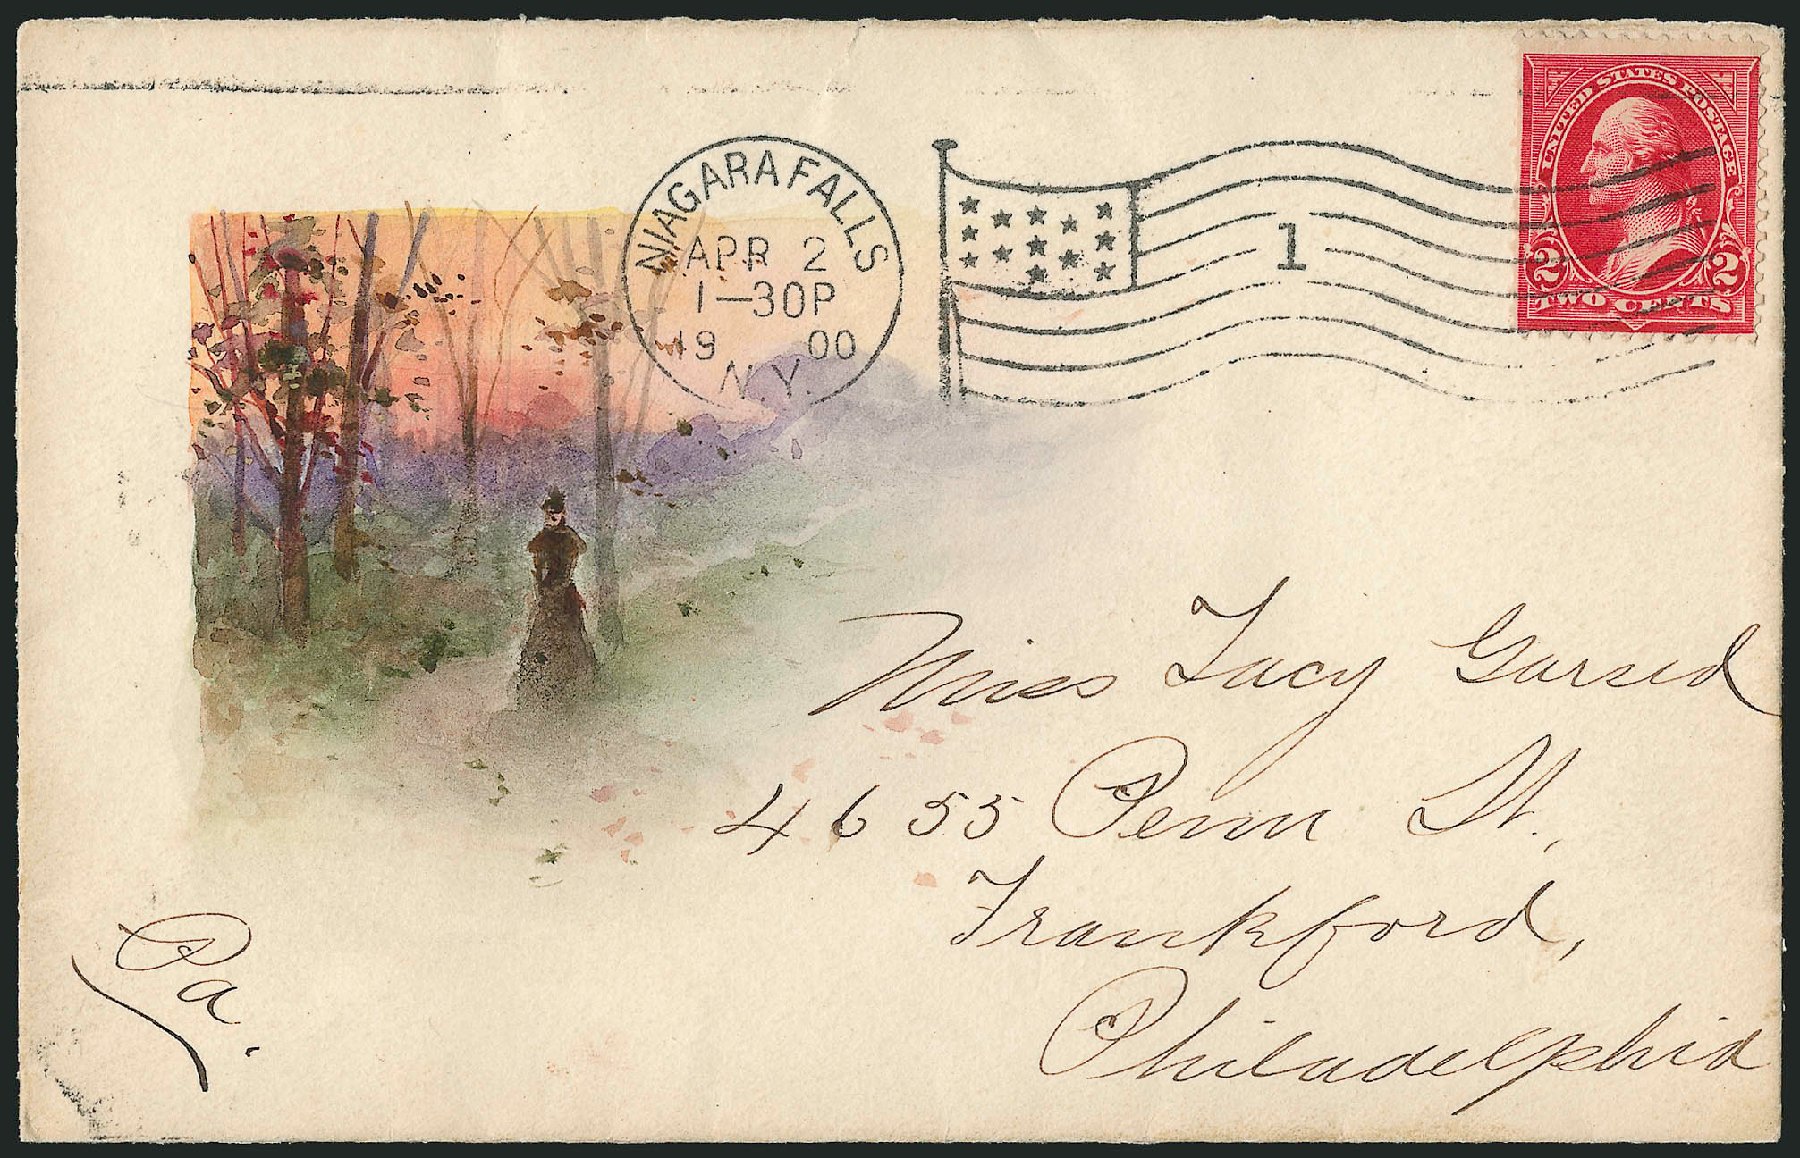 NIAGARA FALLS
APR 2
1—30P
19 00
N.Y.
1
UNITED STATES POSTAGE
2 2
TWO CENTS
Miss Lucy Garsed
4655 Penn St.,
Frankford,
Philadelphia
Pa.